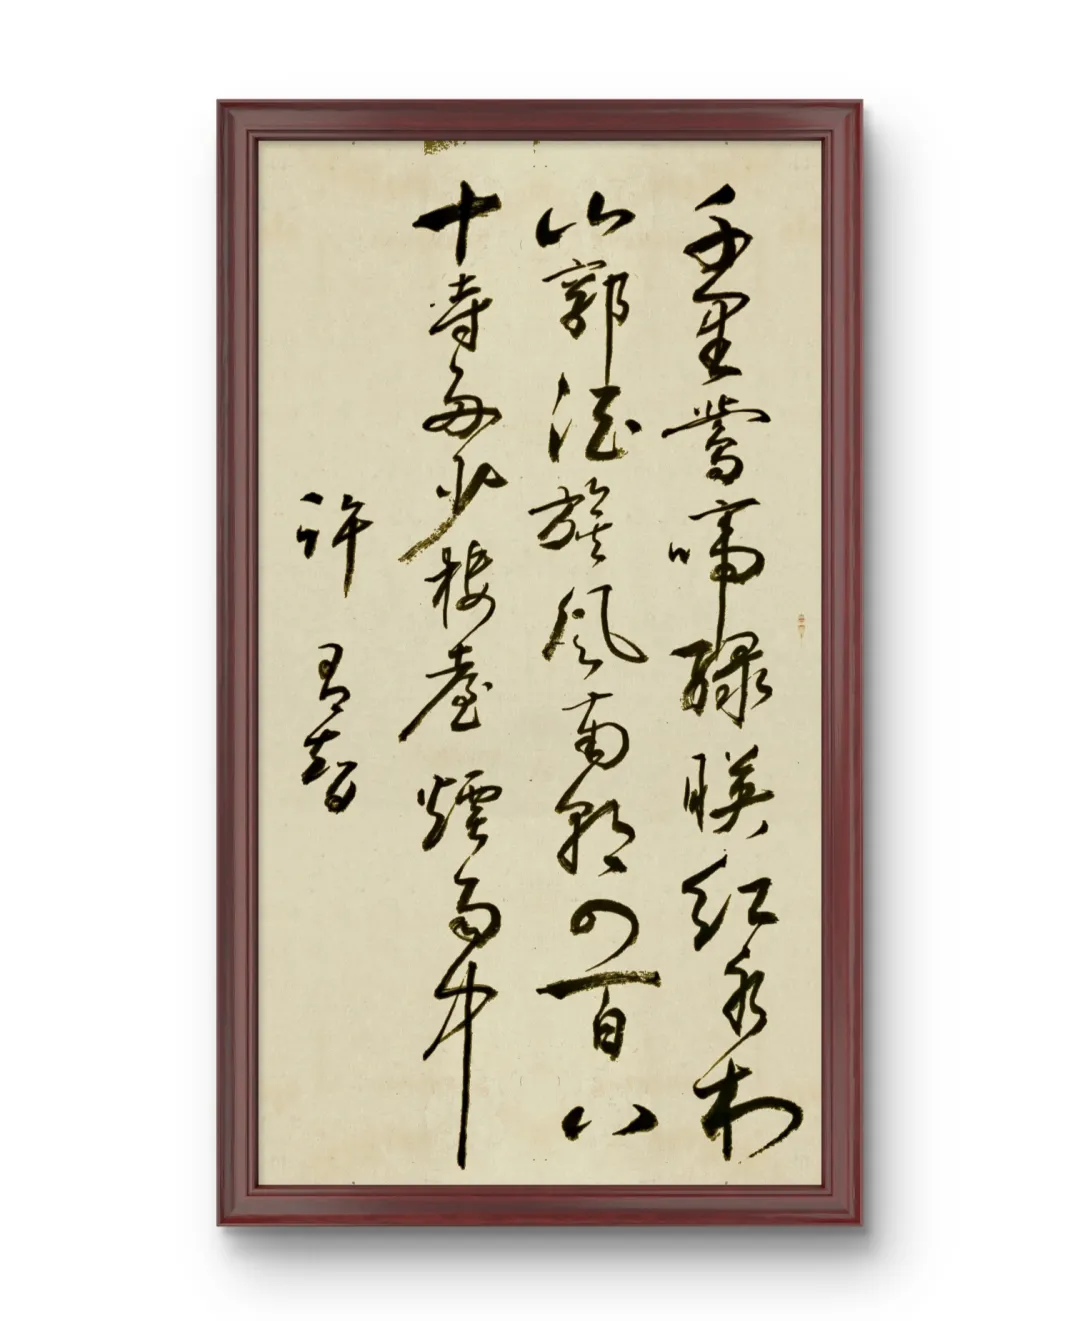 千里鶯啼綠暎紅水村
山郭酒旗風南朝四百八
十寺多少樓臺煙雨中
許 智